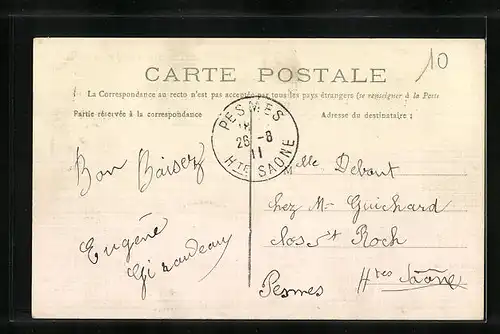 10
CARTE POSTALE
La Correspondance au recto n'est pas acceptée par tous les pays étrangers (se renseigner à la Poste
Partie réservée à la correspondance
Adresse du destinataire ;
PESMES
26 -8
11
HTE SAONE
Bon Baiser
Eugène
Girardeau
Mlle Debant
chez Mr Guichard
Clos St Roch
Pesmes Htes Saône